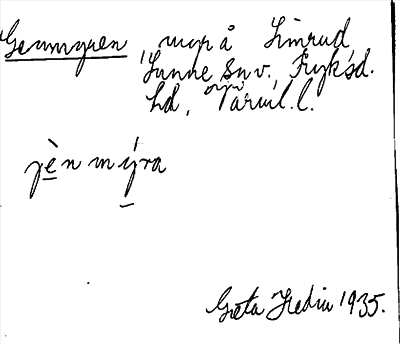 Genmyren, myr å Simrud,
Sunne sn v. Fryksd.
hd, Värml. l.
yènmýra
Greta Hedin 1935.